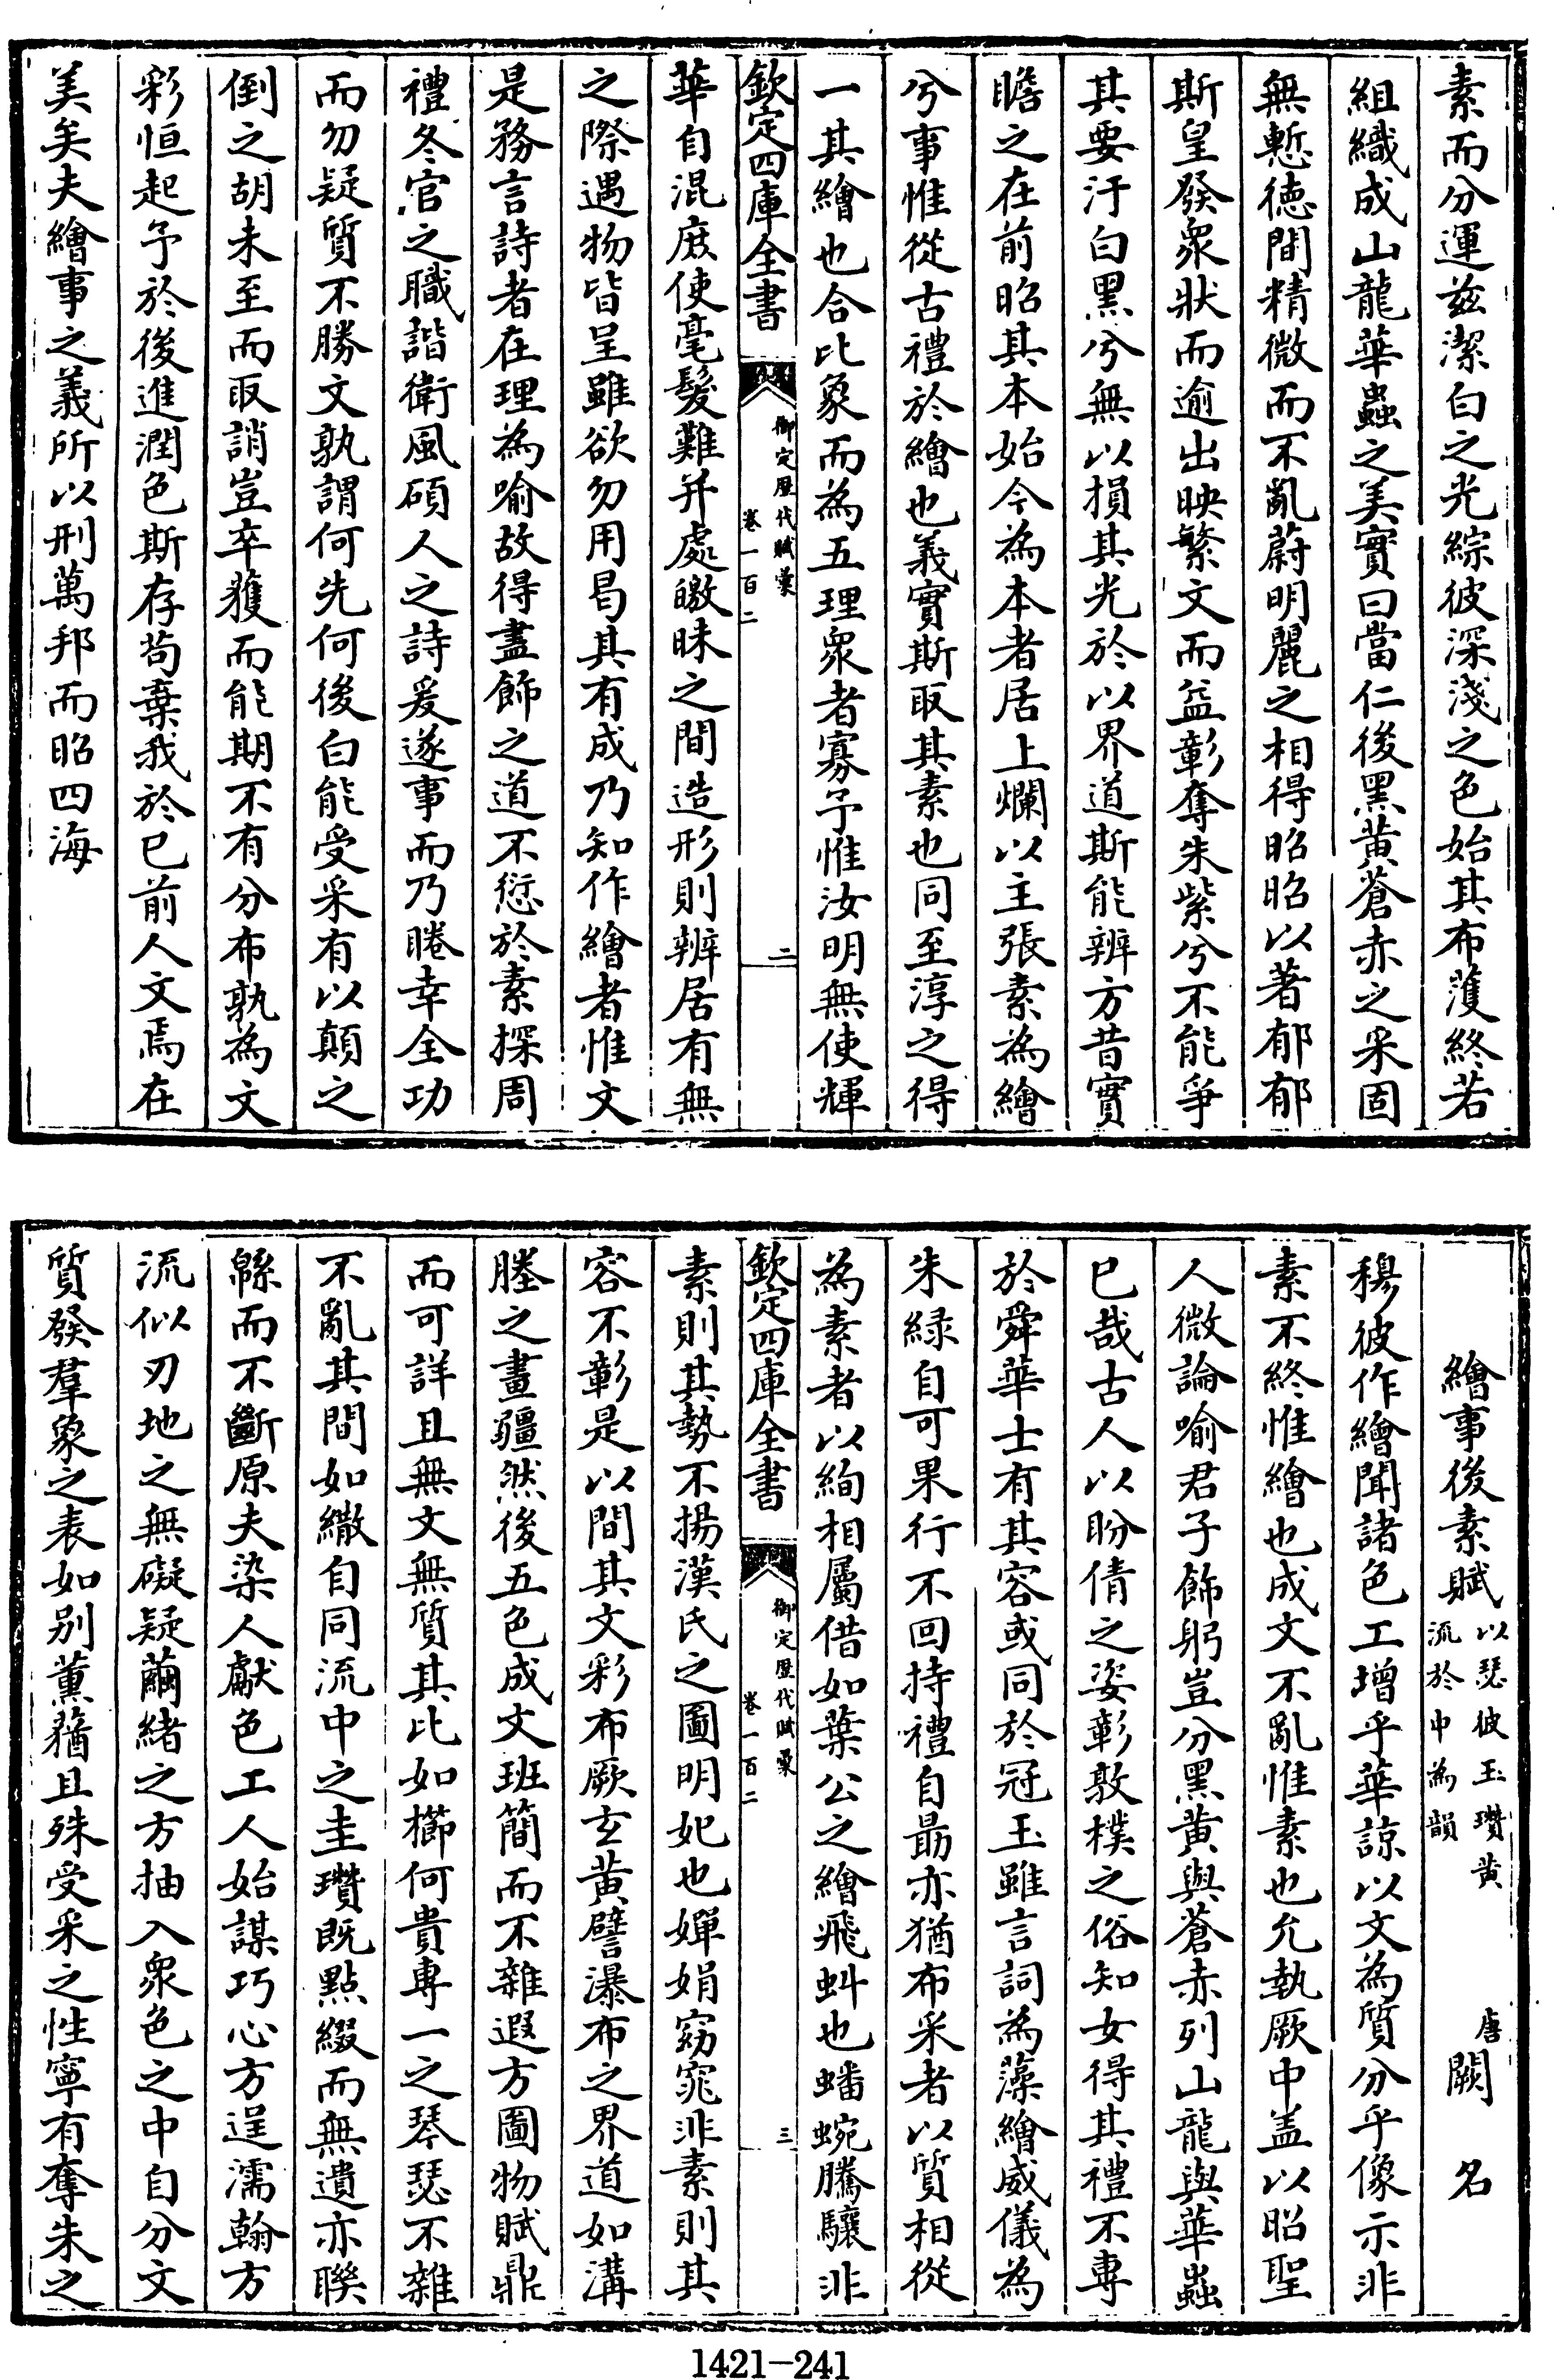 素而分運兹潔白之光綜彼深淺之色始其布濩終若
組織成山龍華蟲之美實曰當仁後黑黄蒼赤之采固
無慙徳間精微而不亂蔚明麗之相得昭昭以著郁郁
斯皇發衆狀而逾出映繁文而益彰奪朱紫兮不能爭
其要汙白黑兮無以損其光於以界道斯能辨方昔實
瞻之在前昭其本始今為本者居上爛以主張素為繪
兮事惟從古禮於繪也義實斯取其素也同至淳之得
一其繪也合比象而為五理衆者寡予惟汝明無使輝
欽定四庫全書
御定歷代賦彙
卷一百二
二
華自混庶使毫髮難并處皦昧之間造形則辨居有無
之際遇物皆呈雖欲勿用曷其有成乃知作繪者惟文
是務言詩者在理為喻故得盡飾之道不愆於素探周
禮冬官之職諧衛風碩人之詩爰遂事而乃睠幸全功
而勿疑質不勝文孰謂何先何後白能受采有以顛之
倒之胡未至而取誚豈卒獲而能期不有分布孰為文
彩恒起予於後進潤色斯存茍棄我於已前人文焉在
美矣夫繪事之義所以刑萬邦而昭四海
繪事後素賦
以瑟彼玉瓚黄
流於中為韻
唐
闕名
穆彼作繪聞諸色工增乎華諒以文為質分乎像示非
素不終惟繪也成文不亂惟素也允執厥中盖以昭聖
人微論喻君子飾躬豈分黑黄與蒼赤列山龍與華蟲
已哉古人以盼倩之姿彰敦樸之俗知女得其禮不専
於舜華士有其容或同於冠玉雖言詞為藻繪威儀為
朱緑自可果行不回持禮自勗亦猶布采者以質相從
為素者以絢相屬借如葉公之繪飛蚪也蟠蜿騰驤非
欽定四庫全書
御定歷代賦彙
卷一百二
三
素則其勢不揚漢氏之圖明妃也嬋娟窈窕非素則其
容不彰是以間其文彩布厥玄黄譬瀑布之界道如溝
塍之畫疆然後五色成文班簡而不雜遐方圖物賦鼎
而可詳且無文無質其比如櫛何貴専一之琴瑟不雜
不亂其間如繖自同流中之圭瓚既點綴而無遺亦聯
緜而不斷原夫染人獻色工人始謀巧心方逞濡翰方
流似刃地之無礙疑繭緒之方抽入衆色之中自分文
質發羣象之表如别薫蕕且殊受采之性寧有奪朱之
1421-241